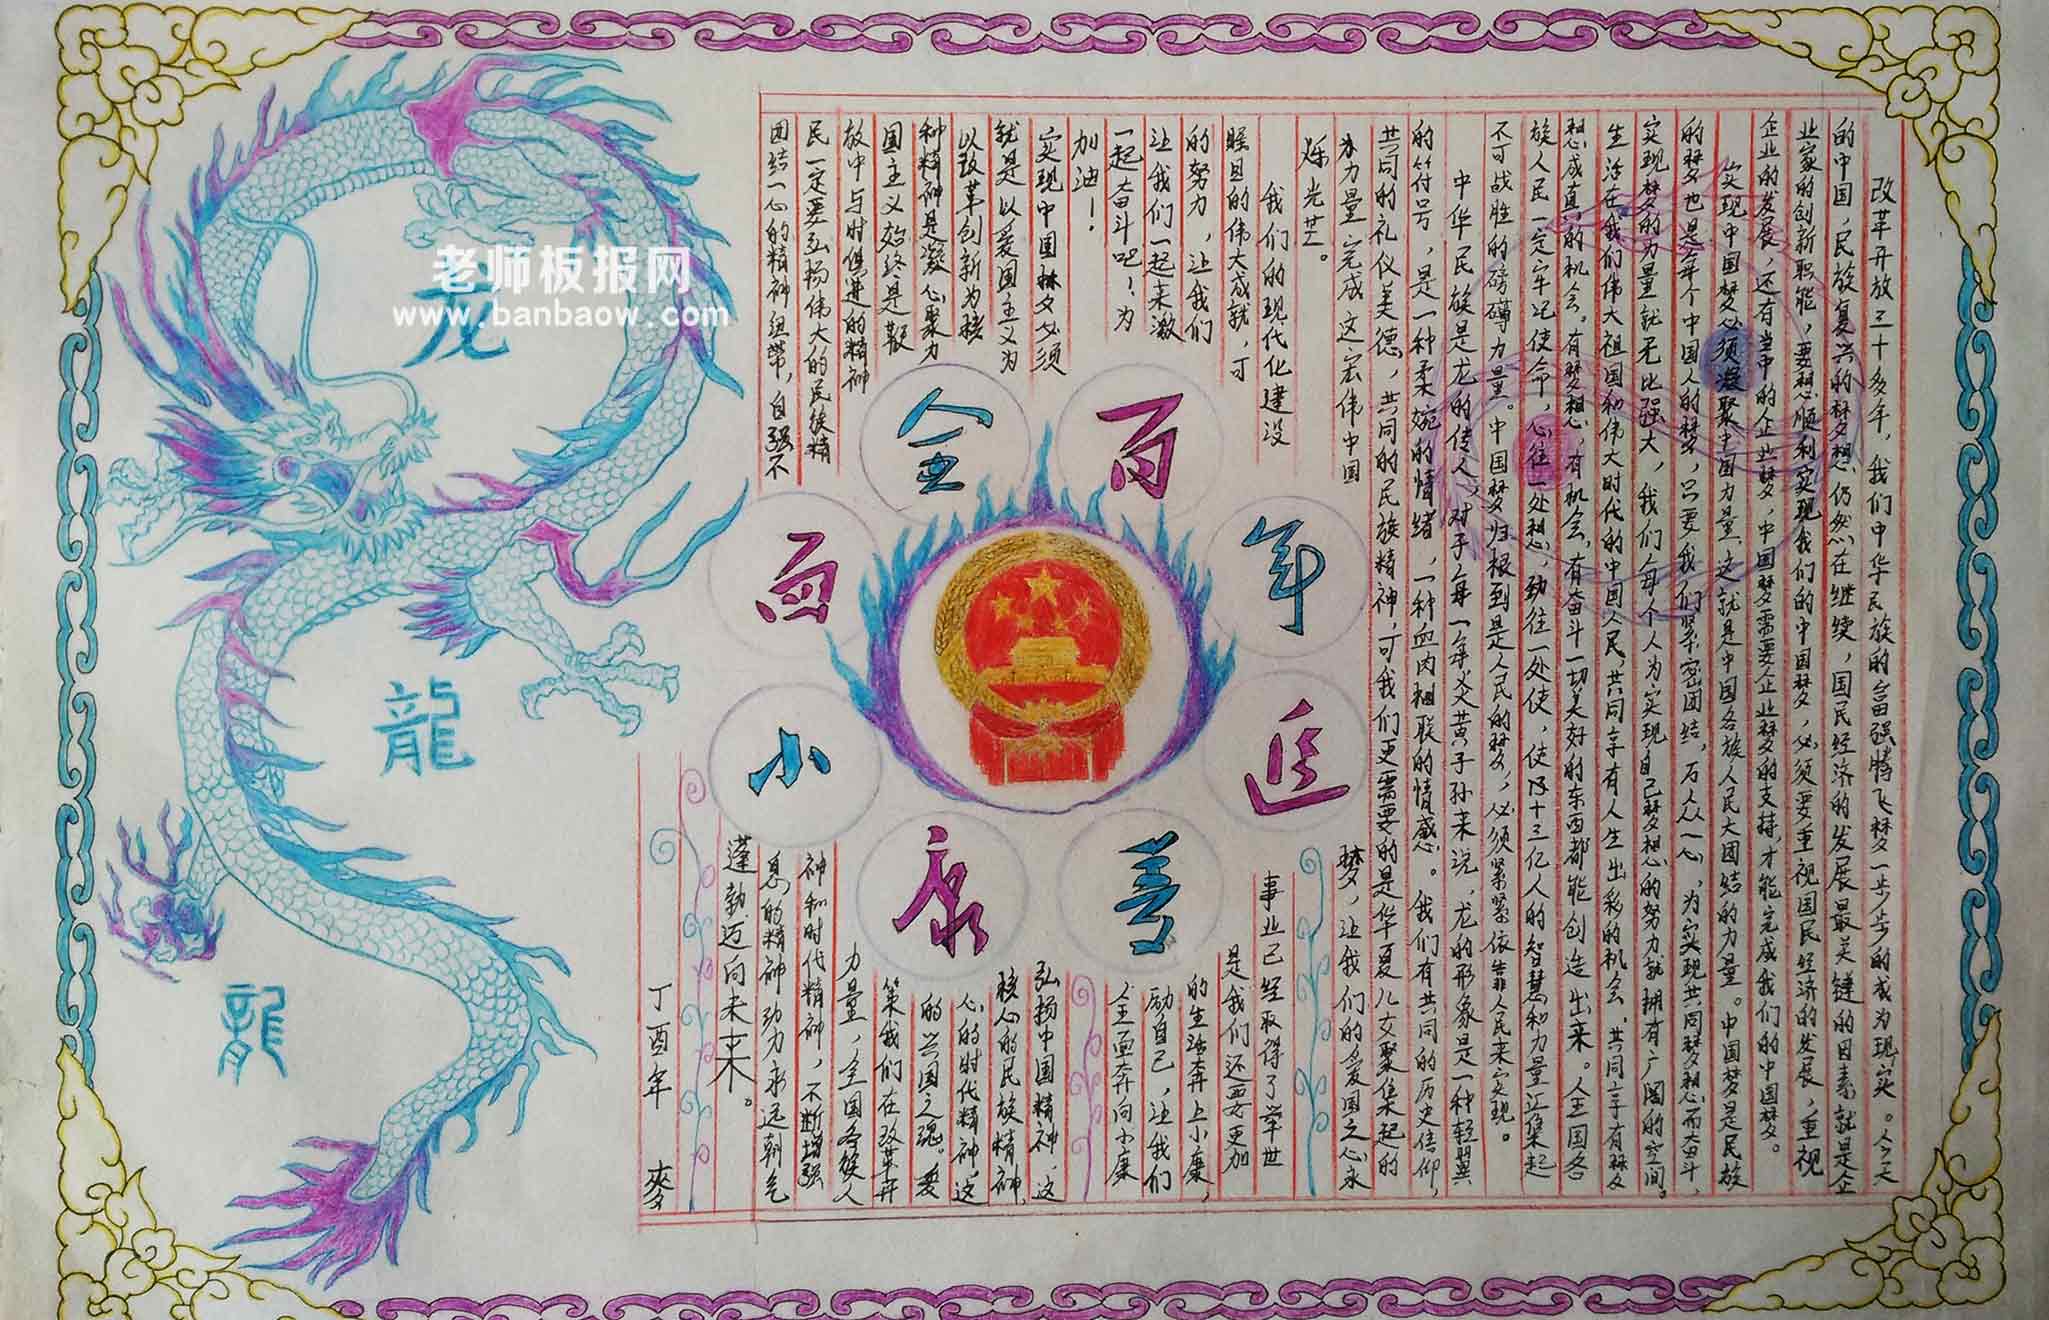 改革开放三十多年，我们中华民族的富强腾飞梦一步步的成为现实。今天
的中国，民族复兴的梦想仍然在继续，国民经济的发展最关键的因素就是企
业家的创新职能，要想顺利实现我们的中国梦，必须要重视国民经济的发展，重视
企业的发展，还有当中的企业梦，中国梦需要企业梦的支持，才能完成我们的中国梦。
实现中国梦必须凝聚中国力量，这就是中国各族人民大团结的力量。中国梦是民族
的梦也是每个中国人的梦，只要我们紧密团结，万人从一心，为实现共同梦想而奋斗，
实现梦的力量就无比强大，我们每个人为实现自己梦想的努力就拥有广阔的空间。
生活在我们伟大祖国和伟大时代的中国人民，共同享有人生出彩的机会，共同享有梦
想成真的机会。有梦想，有机会，有奋斗一切美好的东西都能创造出来。全国各
族人民一定牢记使命，心往一处想，劲往一处使，使用十三亿人的智慧和力量汇集起
不可战胜的磅礴力量。中国梦归根到是人民的梦，必须紧紧依靠人民来实现。
中华民族是龙的传人，对于每一每炎黄子孙来说，龙的形象是一种轻翼
的符号，是一种柔婉的情绪，一种血肉相联的情感。我们有共同的历史信仰，
共同的礼仪美德，共同的民族精神，可我们更需要的是华夏儿女聚集起的
力量完成这宏伟中国梦，让我们的爱国之心永
烁光芒。
我们的现代化建设事业已经取得了举世
瞩目的伟大成就，可是我们还要更加
的努力，让我们的生活奔上小康，
让我们一起来激励自己，让我们
一起奋斗吧！为全面奔向小康
加油！
实现中国梦必须弘扬中国精神，这
就是以爱国主义为核心的民族精神，
以改革创新为核心的时代精神。这
种精神是凝心聚力的兴国之魂。爱
国主义始终是鞭策我们在改革开
放中与时俱进的精神力量，全国各族人
民一定要弘扬伟大的民族精神和时代精神，不断增强
团结一心的精神纽带，自强不息的精神动力永远朝气
蓬勃迈向未来。
丁酉年 麥
百年
全面小康
龙
龍
龍
老师板报网
www.banbaow.com